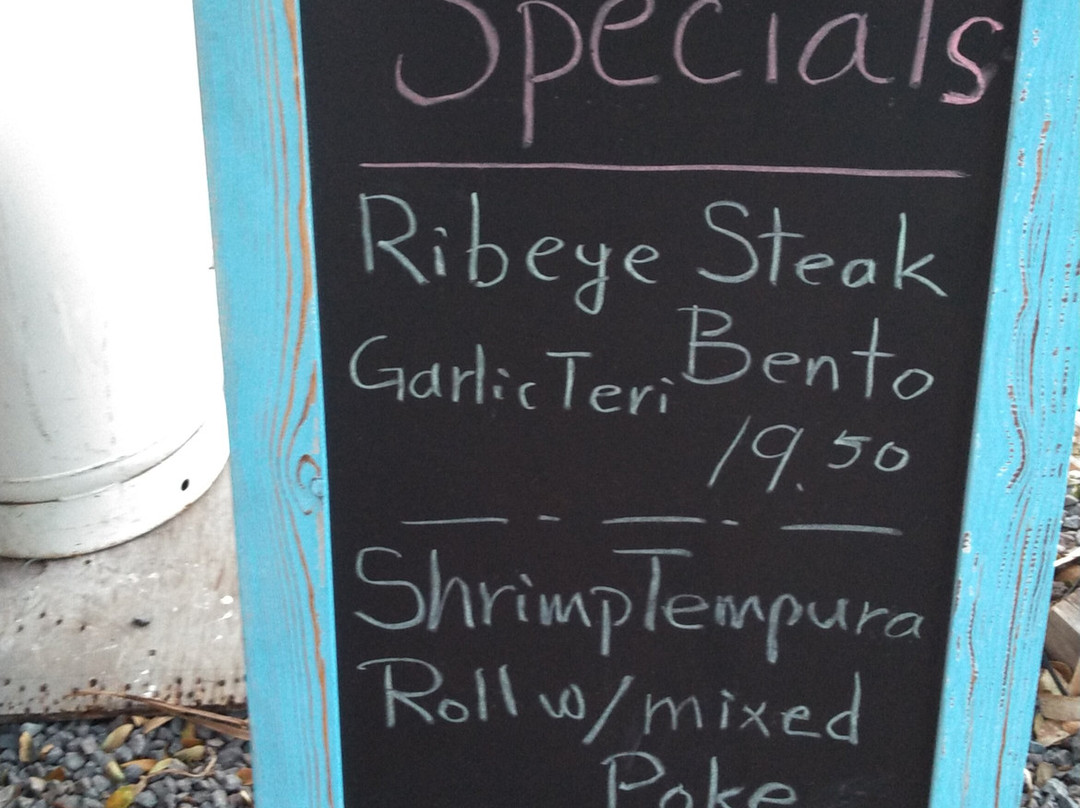 Specials
Ribeye Steak
Garlic Teri Bento
19.50
Shrimp Tempura
Roll w/ mixed
Poke